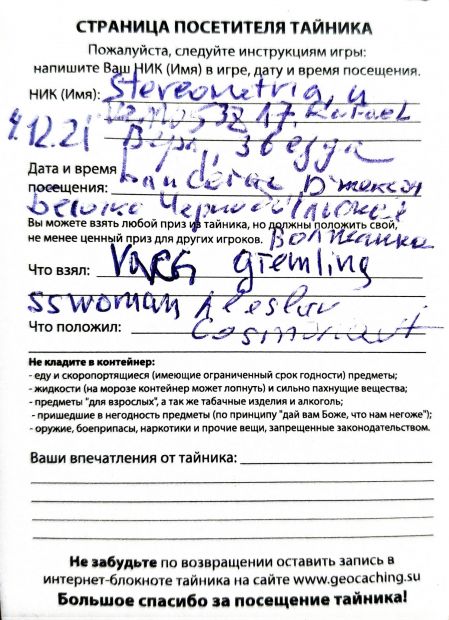 СТРАНИЦА ПОСЕТИТЕЛЯ ТАЙНИКА
Пожалуйста, следуйте инструкциям игры:
напишите Ваш НИК (Имя) в игре, дату и время посещения.
НИК (Имя): Stereometria, и
Rafael
4.12.21 Вера, звезда
Дата и время
посещения: Джексон
Белико Чернобыльское
Вы можете взять любой приз из тайника, но должны положить свой,
не менее ценный приз для других игроков. Волжанка
Что взял: VARG Gremling
sswoman Aleslav
Что положил: Cosmonavt
Не кладите в контейнер:
- еду и скоропортящиеся (имеющие ограниченный срок годности) предметы;
- жидкости (на морозе контейнер может лопнуть) и сильно пахнущие вещества;
- предметы "для взрослых", а так же табачные изделия и алкоголь;
- пришедшие в негодность предметы (по принципу "дай вам Боже, что нам негоже");
- оружие, боеприпасы, наркотики и прочие вещи, запрещенные законодательством.
Ваши впечатления от тайника:
Не забудьте по возвращении оставить запись в
интернет-блокноте тайника на сайте www.geocaching.su
Большое спасибо за посещение тайника!